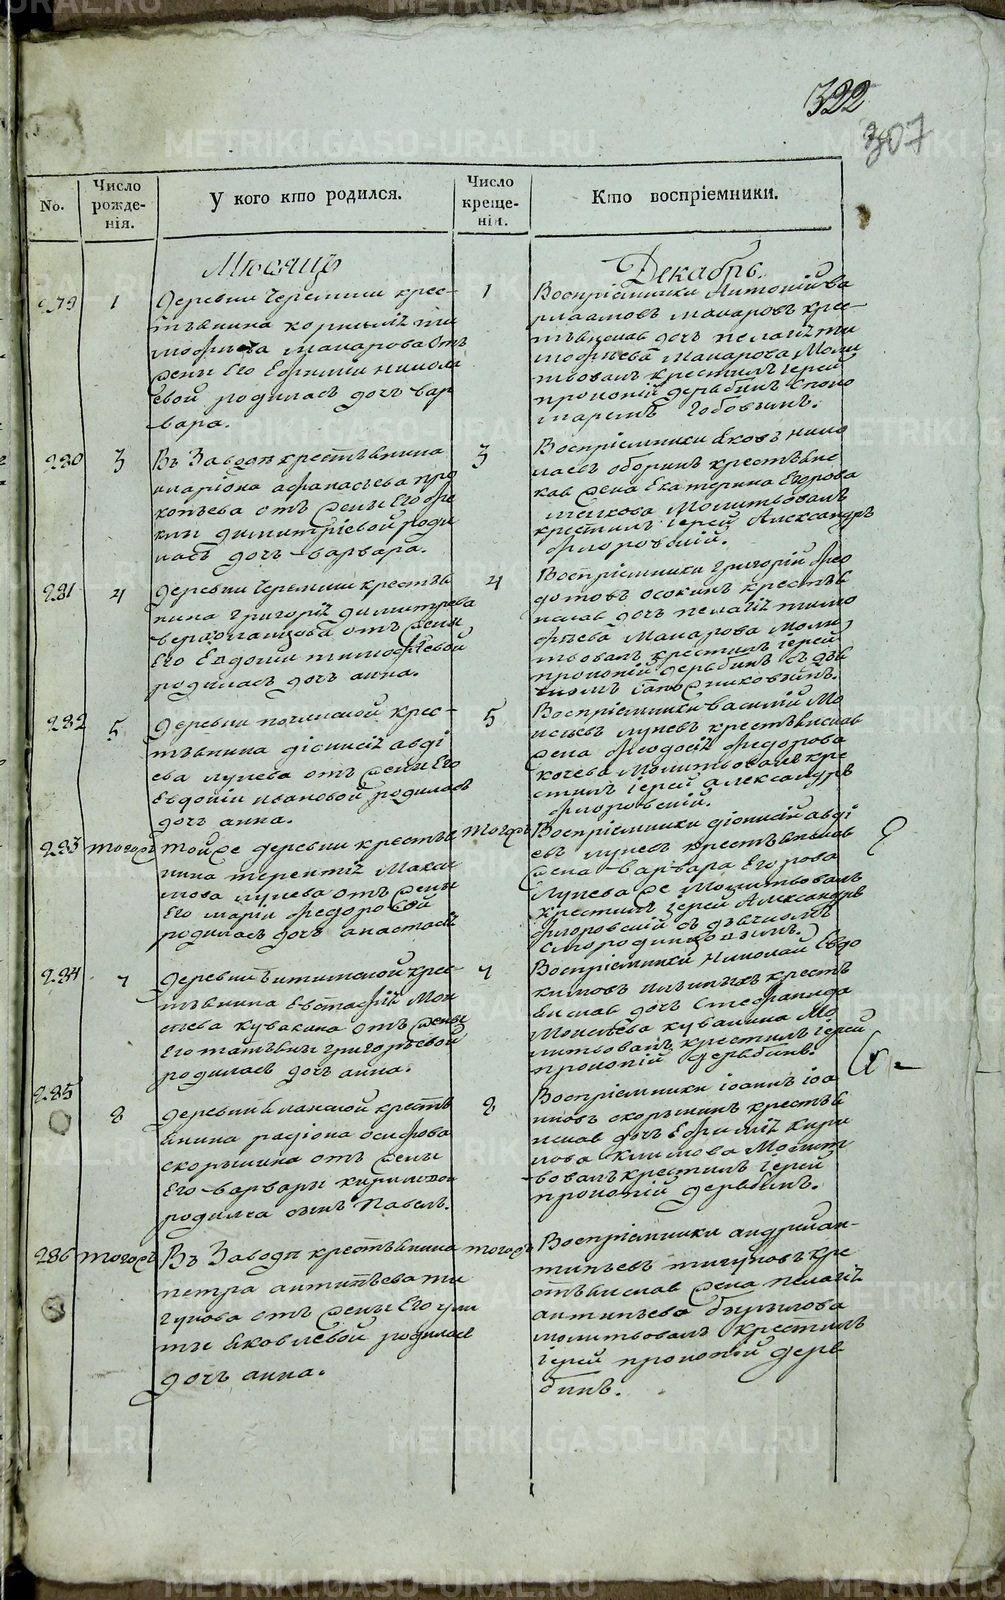 322
307
No.
Число рожденія.
У кого кто родился.
Число крещенія.
Кто воспріемники.
Мѣсяцъ
Декабрь.
279
1
деревни Черемши крес-
тьянина
мофѣева Макарова отъ
жены Его Ефимии Никола
евой родилась дочь Вар
вара.
1
Воспріемники Антоній Ва
рлаамовъ Макаровъ кре-
стьянская дочь Пелагія Ти
мофѣева Макарова Моли
твовалъ крестилъ іерей
прокопій дерябинъ спono
маремъ
280
3
Въ Заводѣ крестьянина
иларіона афанасьева про
копьева отъ жены Его Фе
клы димитріевой роди
лась дочь варвара.
3
Воспріемники яковъ нико
лаевъ оборинъ крестьянс
кая жена Екатерина Егорова
Молитвовалъ
крестилъ іерей Александръ
флоровскій.
281
4
деревни Черемши крестья
нина григорія димитрева
отъ жены
Его Евдокіи тимофѣевой
родилась дочь анна.
4
Воспріемники григорій фео
дотовъ осокинъ крестья
нская дочь пелагія тимо
фѣева Макарова Моли
твовалъ крестилъ іерей
прокопій дерябинъ съ дья
282
5
деревни починской крес-
тьянина діонисія авді
ева лупева отъ жены Его
Евдокіи ивановой родилась
дочь анна.
5
Воспріемники василій Мо
исеевъ лупевъ крестьянская
жена Феодосія Федорова
кочева Молитвовалъ кре
стилъ іерей александръ
флоровскій.
283
тогожъ
тойже деревни крестья
нина терентія Макси
мова лупева отъ жены
Его маріи федоровой
родилась дочь анастасія
тогожъ
Воспріемники діонисій авді
евъ лупевъ крестьянская
жена варвара Егорова
Лупева же Молитвовалъ
крестилъ іерей Александръ
флоровскій съ дьячкомъ
284
7
деревни крес-
тьянина Евстафія Мои
сѣева кувакина отъ жены
Его татьяны григорьевой
родилась дочь анна.
7
Воспріемники Николай Евдо
кимовъ кресть
янская дочь Стефанида
Моисѣева кувакина Мо
литвовалъ крестилъ іерей
прокопій дерябинъ.
285
8
деревни кресть
янина радіона осипова
скорынина отъ жены
Его варвары кириловой
родился сынъ Павелъ.
8
Воспріемники іоаннъ іоа
нновъ скорынинъ крестья
нская дочь Ефимія кири
лова Молит
вовалъ крестилъ іерей
прокопій дерябинъ.
286
тогожъ
Въ Заводѣ крестьянина
петра антипьева ти
гунова отъ жены Его ули
ты яковлевой родилась
дочь анна.
тогожъ
Воспріемники андрей ан-
типьевъ тигуновъ кре
стьянская жена пелагія
антипьева
молитвовалъ крестилъ
іерей прокопій деря
бинъ.
METRIKI.GASO-URAL.RU